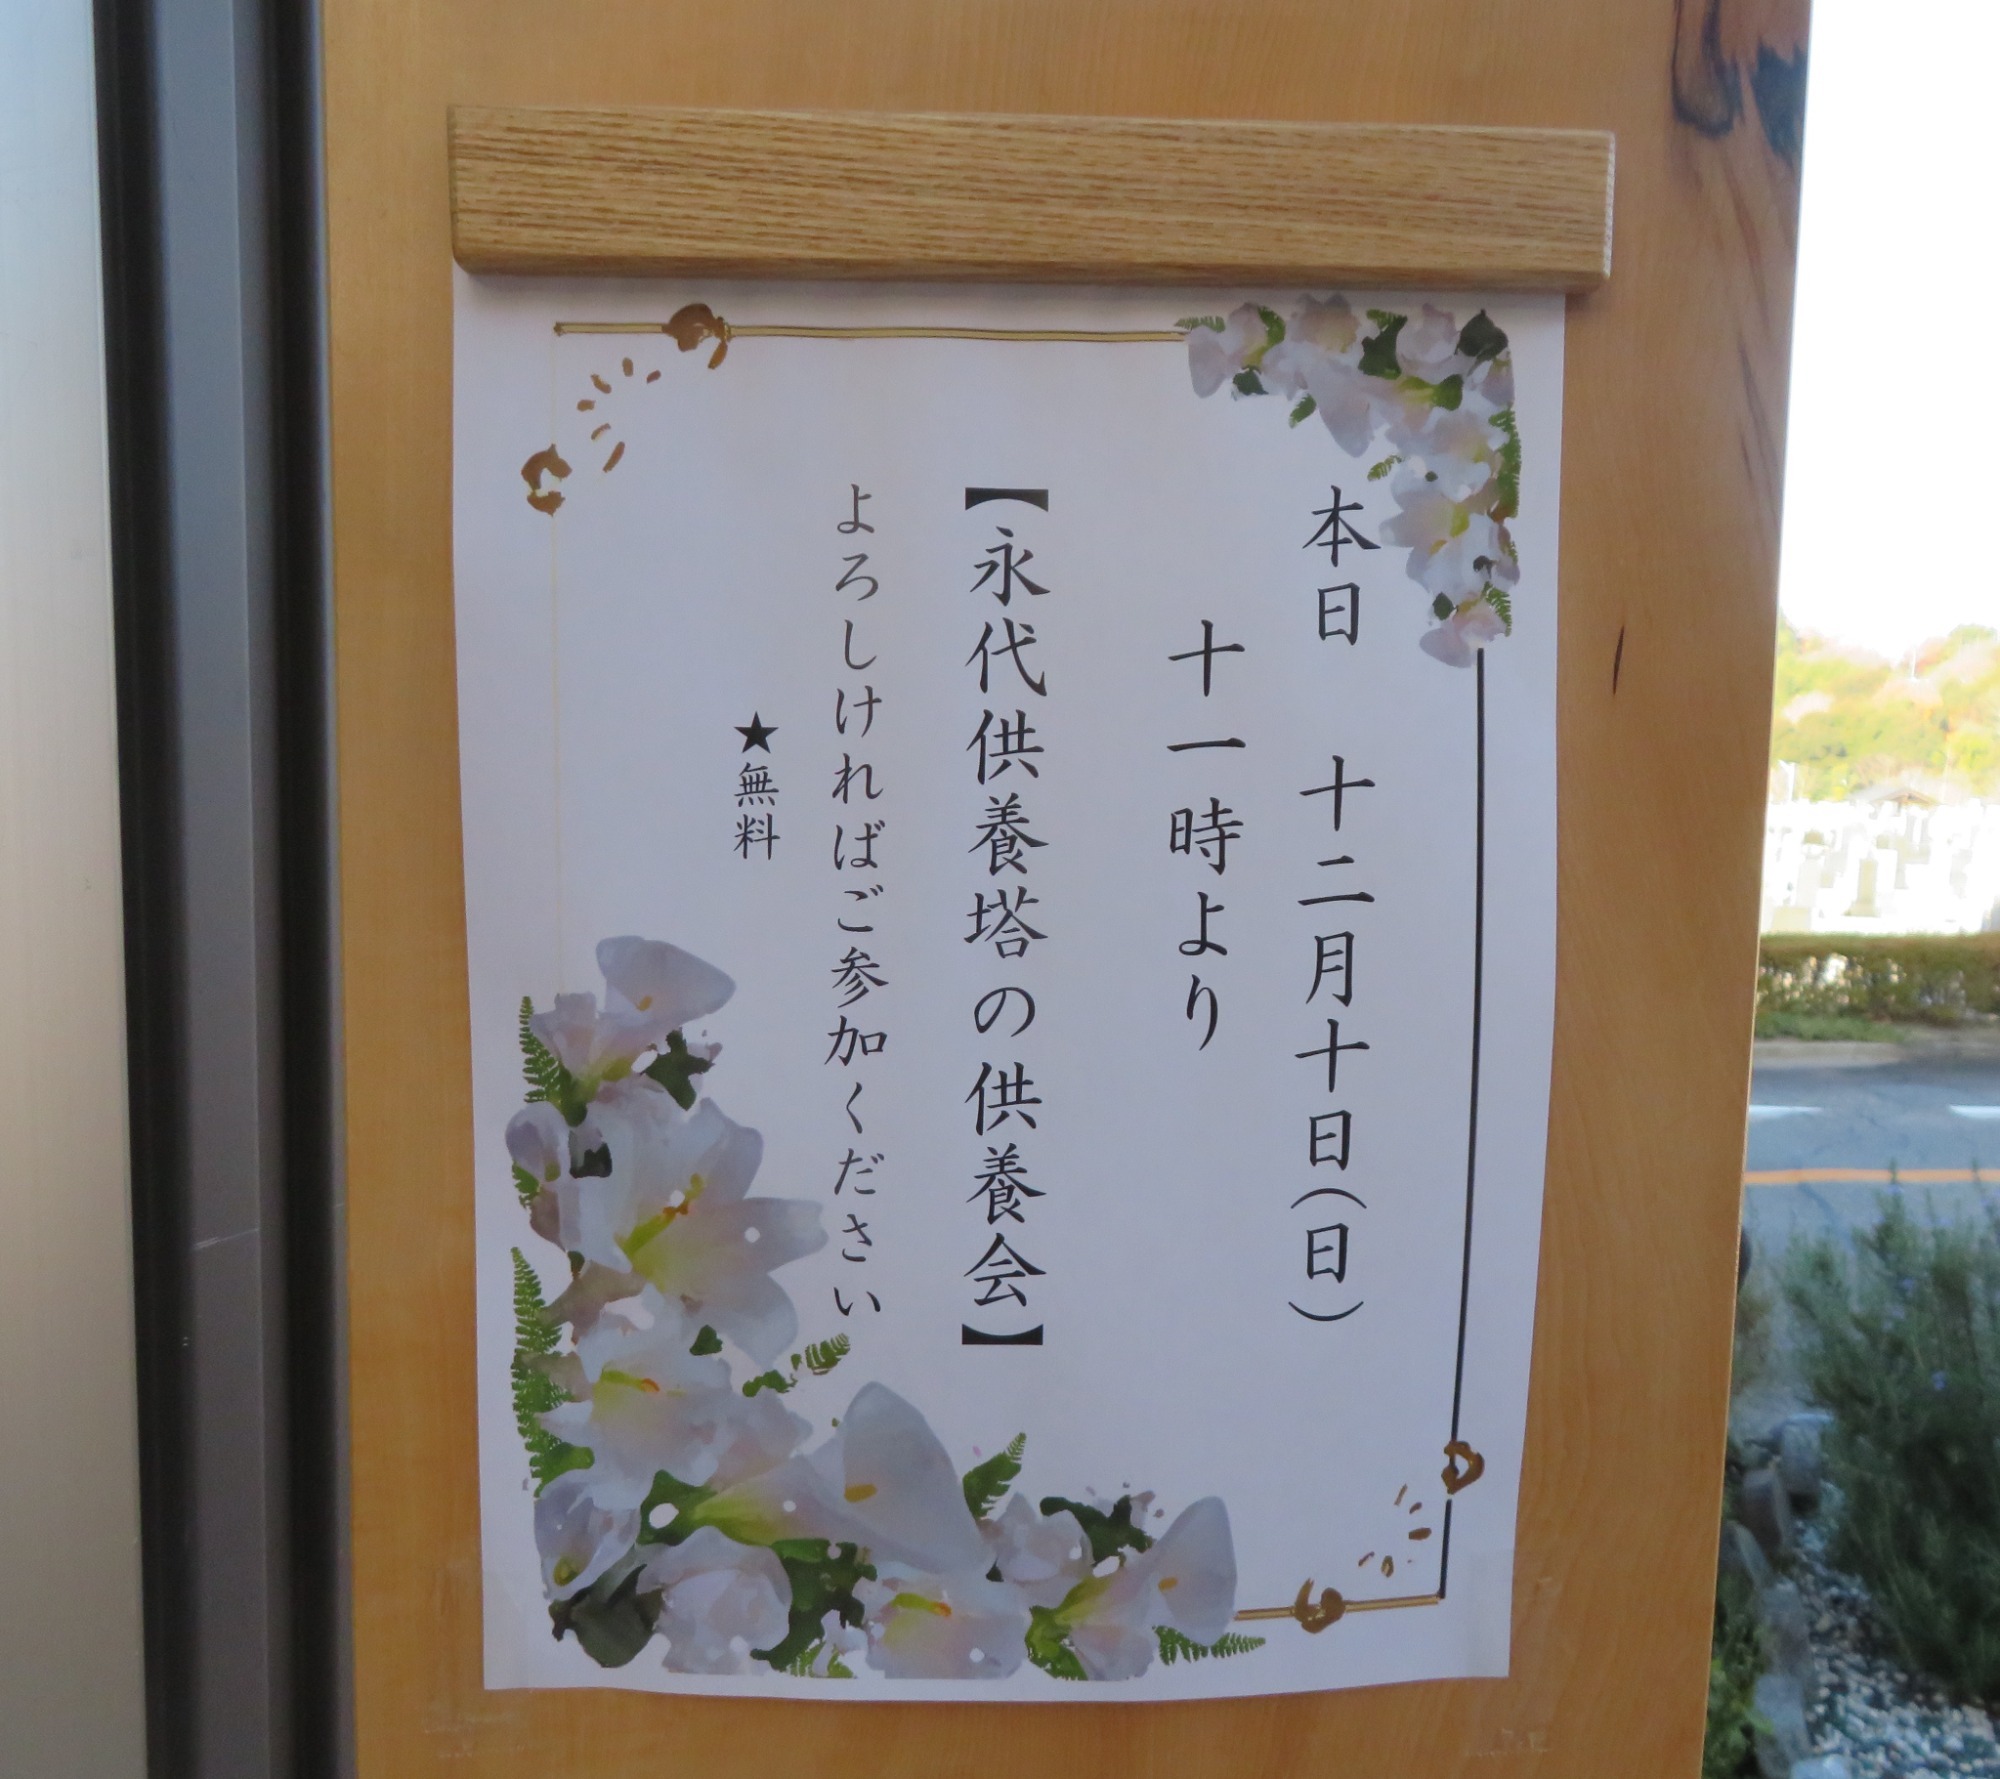 本日 十二月十日(日)
十一時より
【永代供養塔の供養会】
よろしければご参加ください
★無料